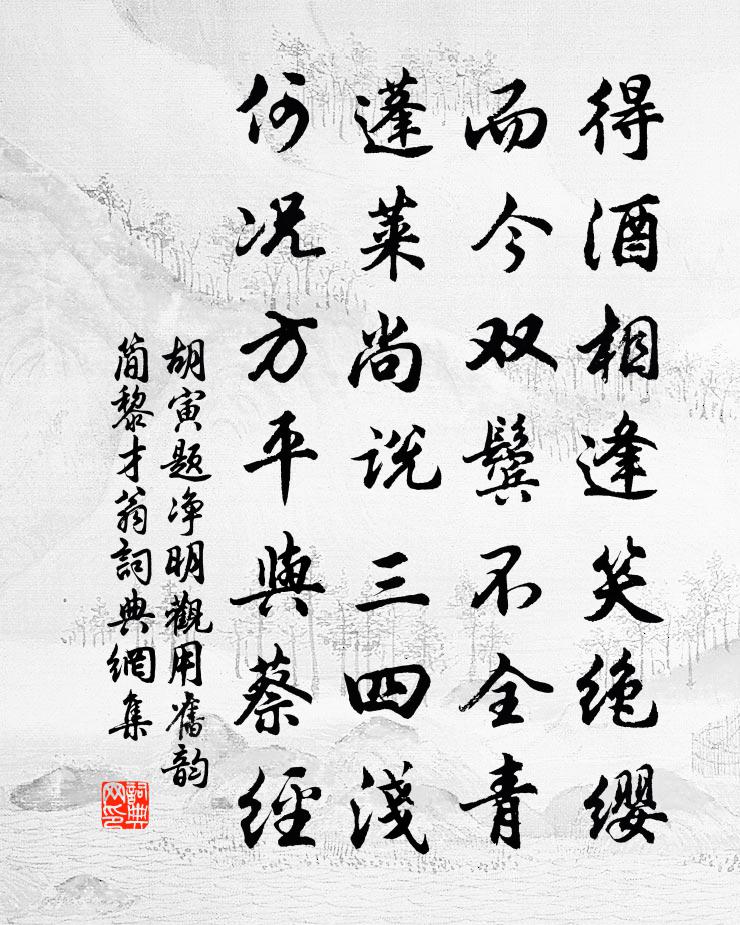 得酒相逢笑绝缨
而今双鬓不全青
蓬莱尚说三四淺
何况方平與蔡經
胡寅题净明觀用舊韵
简黎才翁詞典網集
詞典
网印